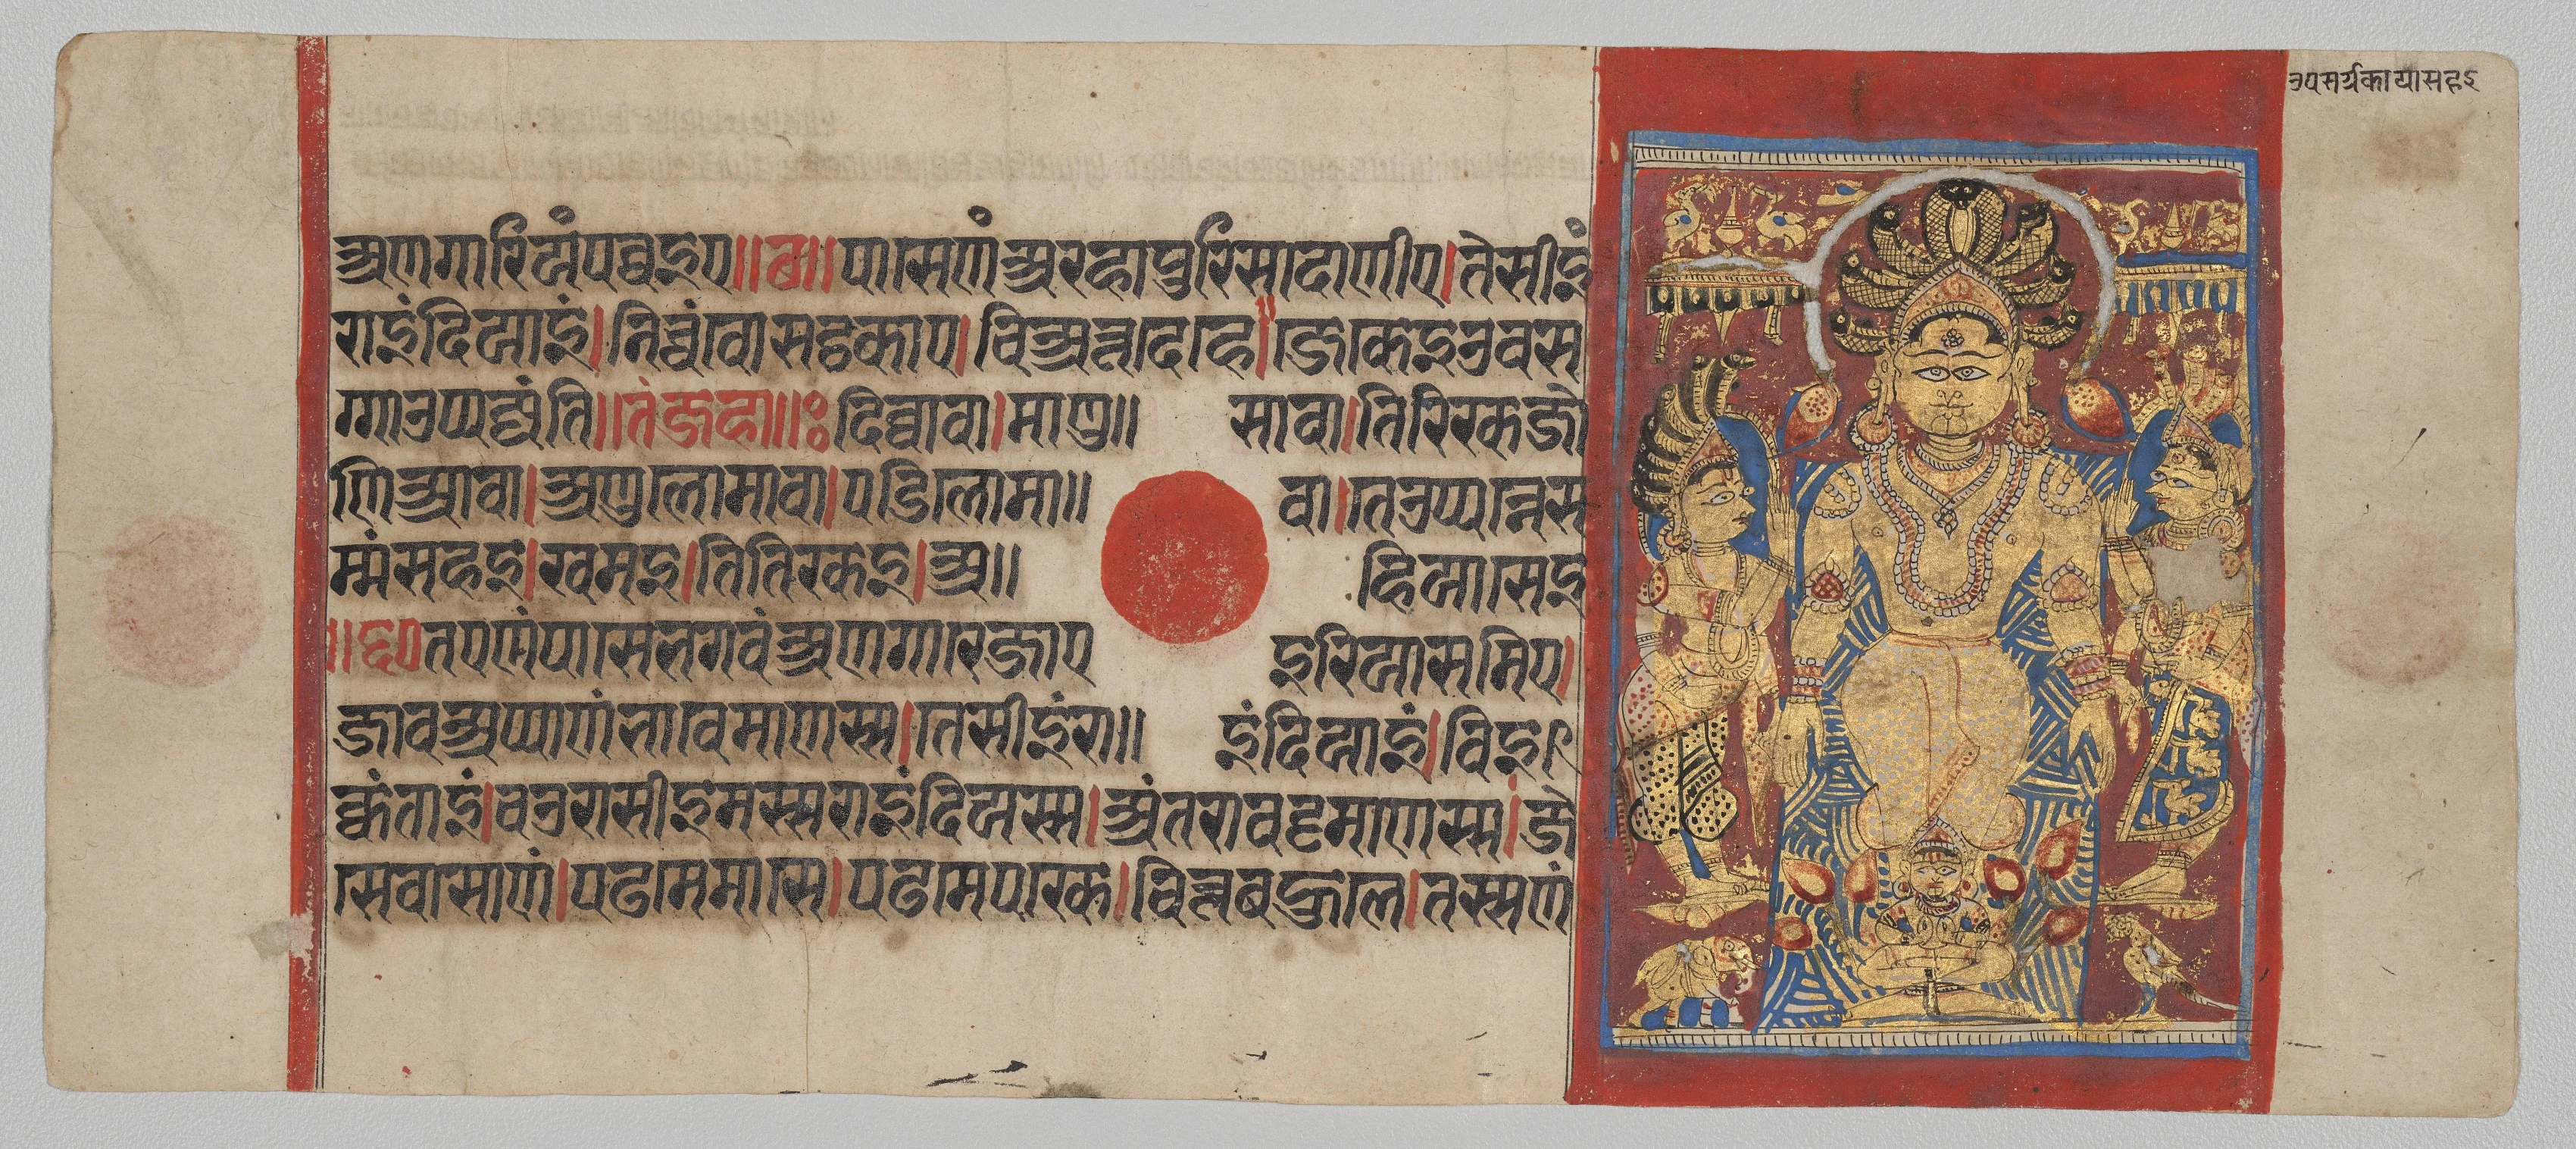 उपसर्गकायासहइ
अणगारियं पव्वइए॥छ॥पासेणं अरहा पुरिसादाणीए।तेसीइं
राइंदियाइं।निच्चं वोसट्ठकाए।चिअत्तदेहे।जे केइ उवस
ग्गा उप्पज्जंति॥तं जहा॥ः दिव्वा वा।माणु॥ सा वा।तिरिरकजो
णिआ वा।अणुलोमा वा।पडिलोमा॥ वा।ते उप्पन्ने स
म्मं सहइ।खमइ।तितिरकइ।अ॥ हियासेइ
॥छ॥तएणं पासे भगवं अणगारे जाए इरियासमिए।
जाव अप्पाणं भावेमाणस्स।तेसीइं रा॥ इंदियाइं।विइ
क्कंताइं।चउरासीइमस्स राइंदियस्स।अंतरा वट्टमाणस्स।जे
से वासाणं।पढमे मासे।पढमे परके।चित्तबहुले।तस्सणं